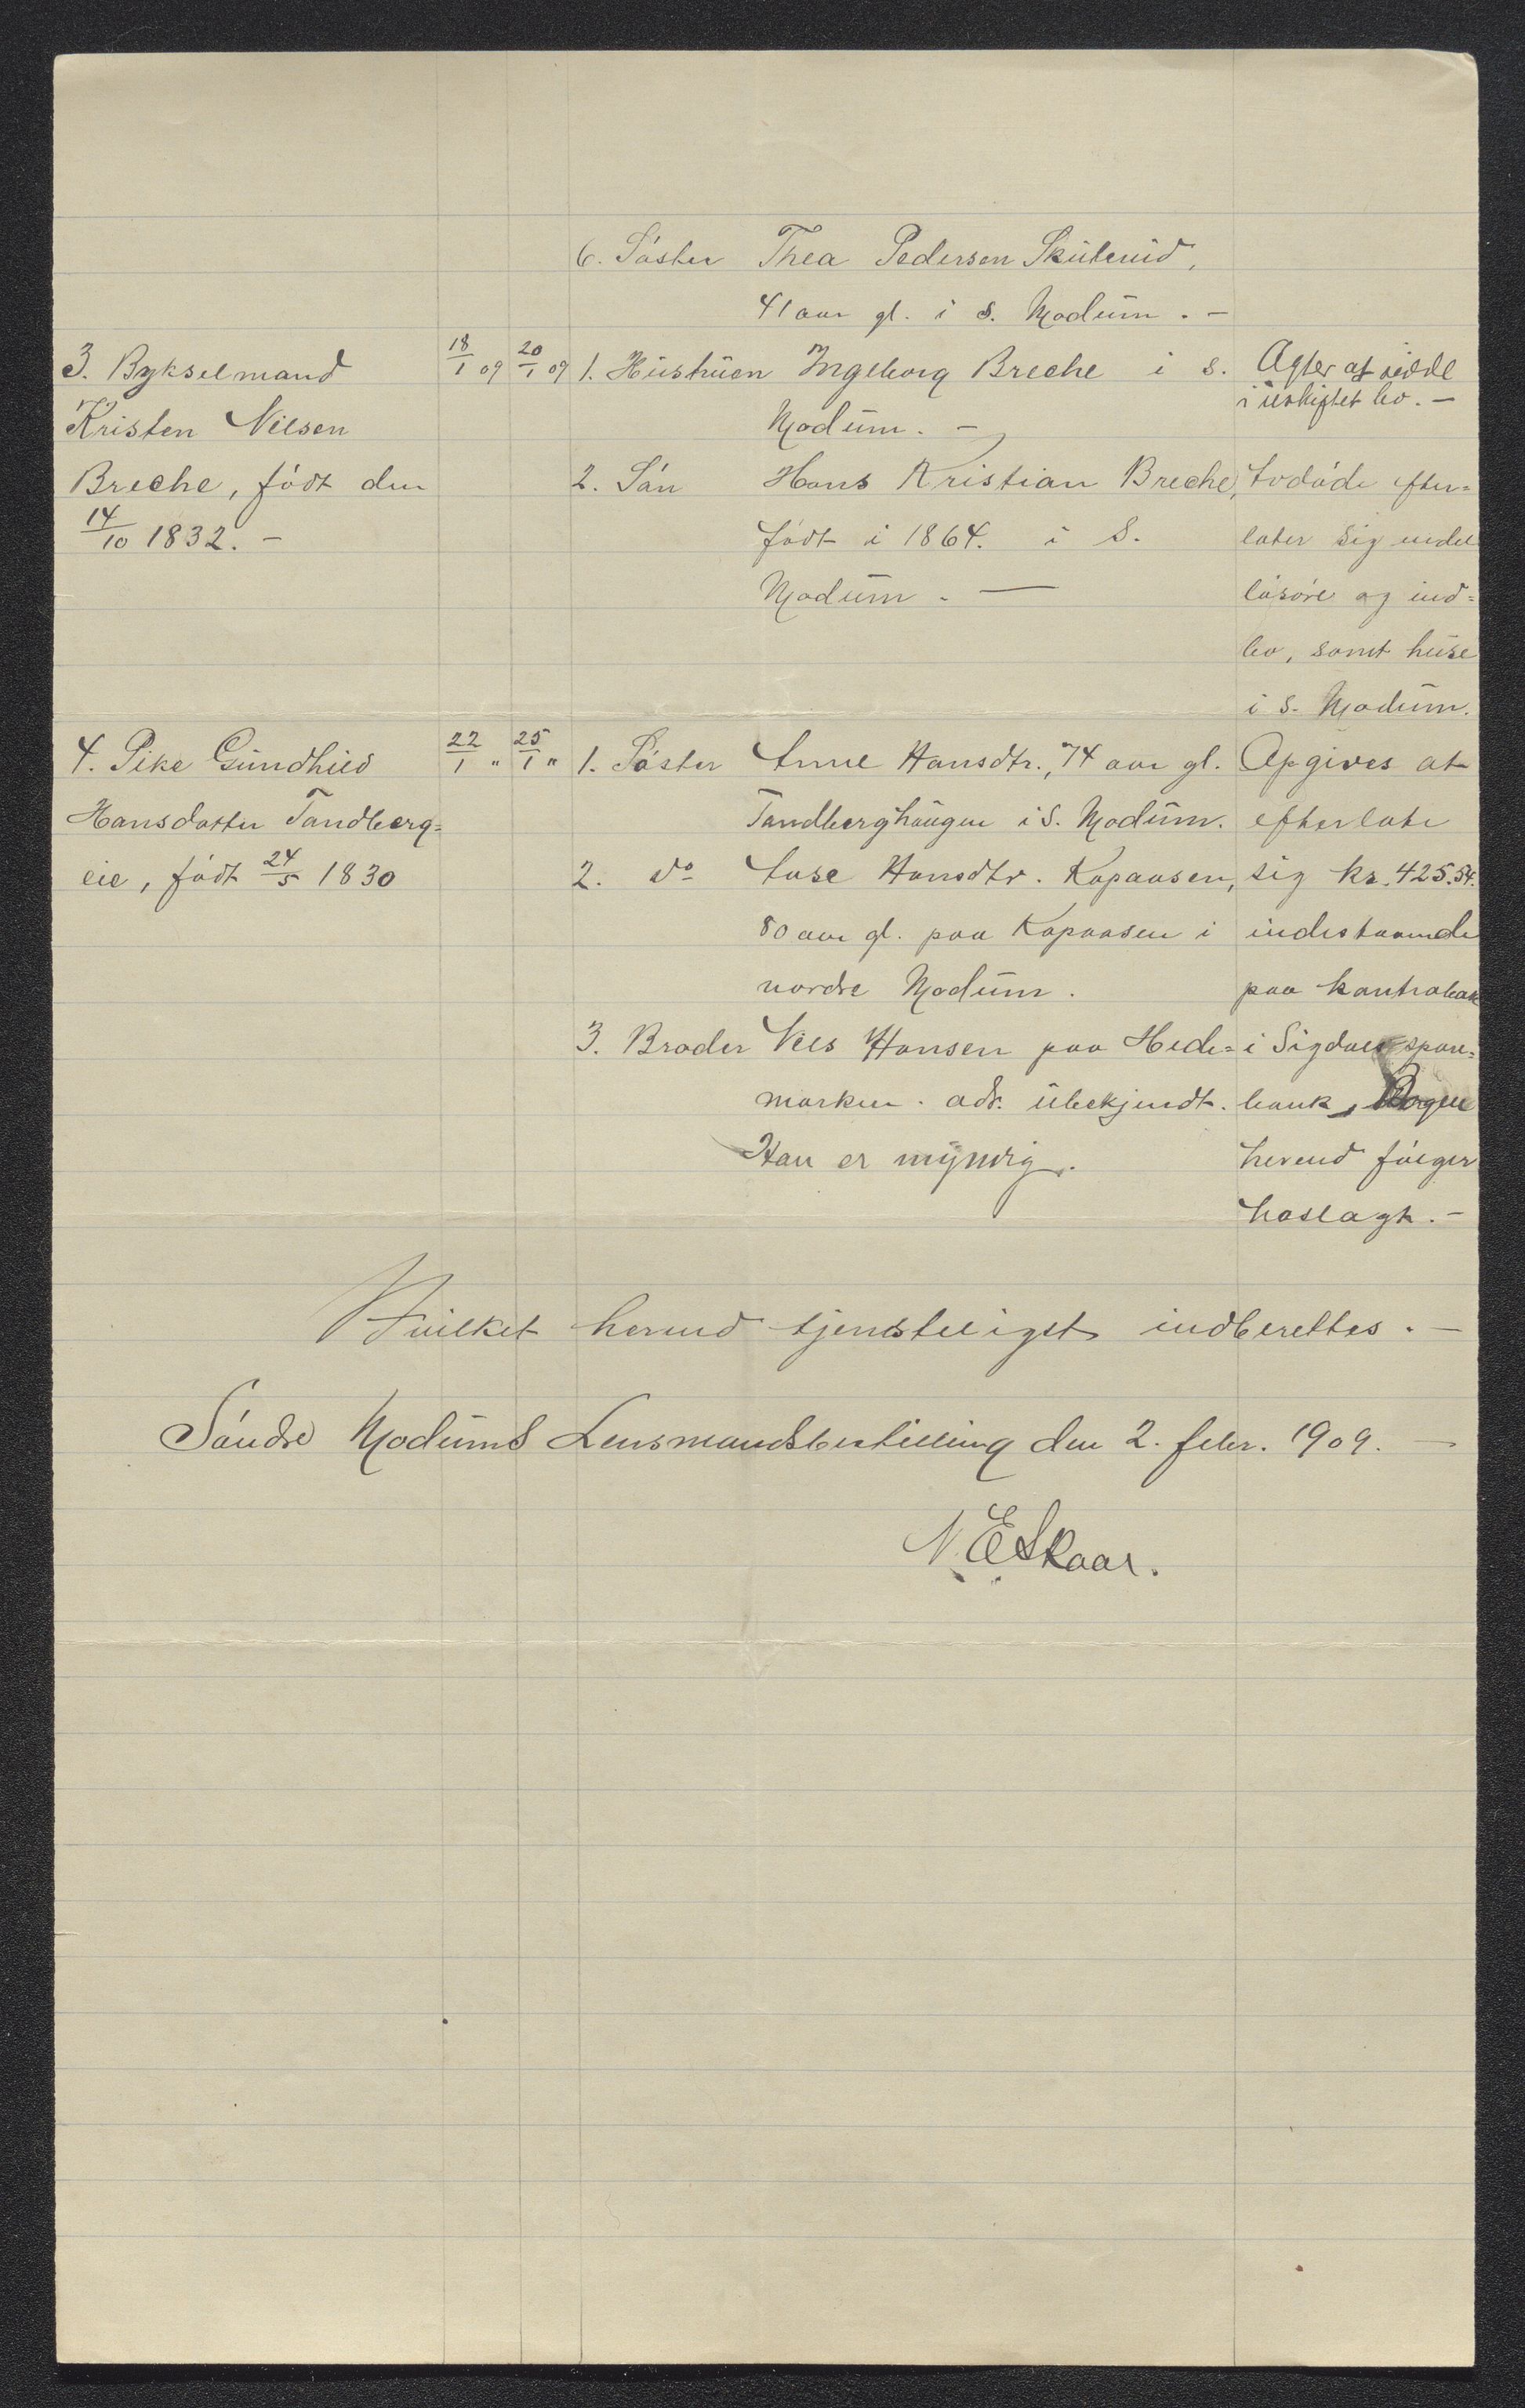 6. Søster Thea Pedersen Skuterud,
41 aar gl. i s. Modum. -
3. Bykselmand
Kristen Nilsen
Breche, født den
14/10 1832. -
18/1 09 20/1 09
1. Hustruen Ingeborg Breche i s.
Modum. -
2. Søn Hans Kristian Breche,
født i 1864. i S.
Modum. -
Agter at sidde
i uskiftet bo. -
Avdøde efter=
later sig endel
løsøre og ind=
bo, samt huse
i s. Modum.
4. Pike Gundhild
Hansdatter Tandberg=
eie, født 24/5 1830
22/1 " 25/1 "
1. Søster Anne Hansdtr., 74 aar gl.
Tandberghaugen i S. Modum.
2. do Aase Hansdtr. Kopaasen,
80 aar gl. paa Kopaasen i
nordre Modum.
3. Broder Nils Hansen paa Hede=
marken. adr. ubekjendt.
Han er myndig.
Opgives at
efterlate
sig kr. 425.54.
indestaaende
paa kontrabok
i Sigdals spare=
bank,
herved følger
hoslagt. -
Hvilket herved tjenstligst indberettes. -
Søndre Modums Lensmandsbestilling den 2. febr. 1909. -
N. E Skaar.